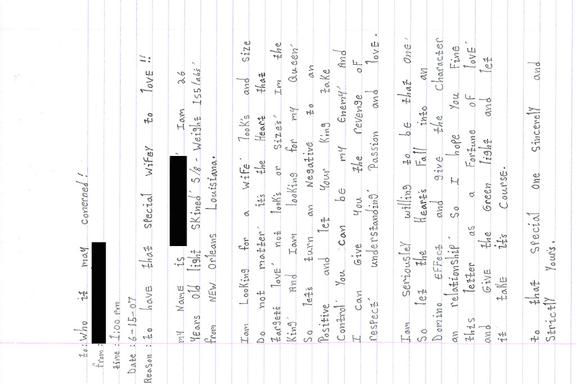 to: Who it may concerned!
from:
time: 1:00 pm
Date: 6-15-07
Reason: to have that special wifey to love!!
my Name is Iam 26
Years old light skined' 5/8 - Weight 155/abs'
from NEW Orleans Louisiana.
Iam Looking for a Wife' looks and size
Do not matter' it's the Heart that
targets love' not looks or sizes' Im the
King' And Iam looking for my Queen'
So lets turn an Negative to an
Positive and let Your King take
Control' You can be my Enemy' And
I can Give You the revenge of
respect' understanding' Passion and love.
Iam seriousley willing to be that one'
So let the Heart's Fall into an
Domino EFFect and give the Character
an relationship' So I hope You Fine
this letter as a Fortune of love'
and Give the Green light and let
it take it's Course.
to that Special One Sincerely and
Strictly Your's.